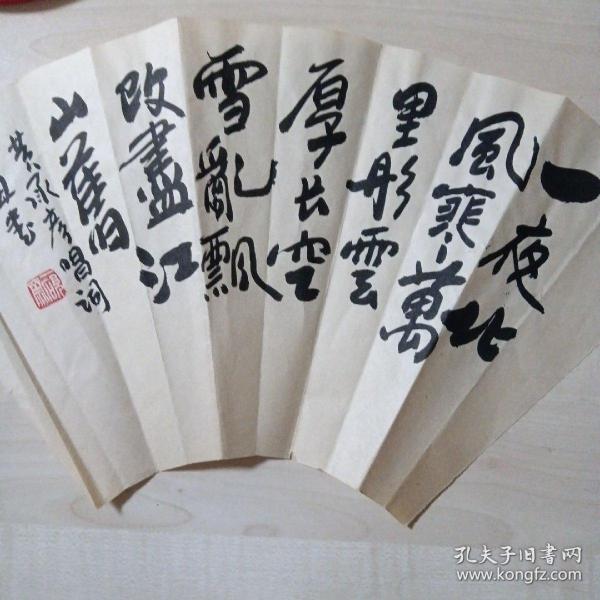 一夜北
風寒萬
里彤雲
厚長空
雪亂飄
改盡江
山舊
黄承彦唱詞
孔夫子旧書网
www.kongfz.com